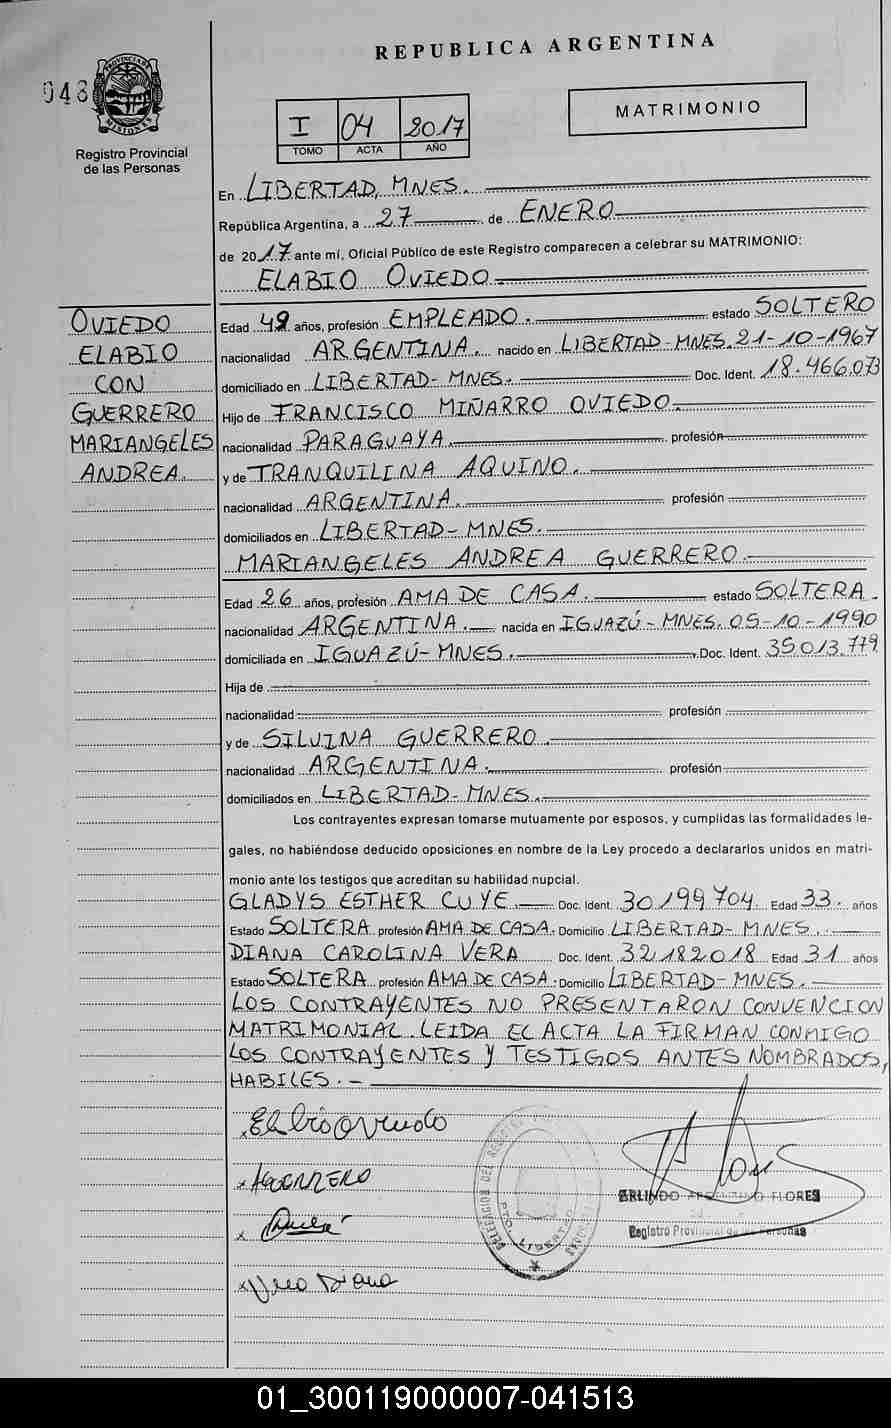 REPUBLICA ARGENTINA
048
PROVINCIA DE MISIONES
Registro Provincial
de las Personas
I 04 2017
TOMO ACTA AÑO
MATRIMONIO
En LIBERTAD, MNES.
República Argentina, a 27 de ENERO
de 2017 ante mí, Oficial Público de este Registro comparecen a celebrar su MATRIMONIO:
ELABIO OVIEDO
OVIEDO
ELABIO
CON
GUERRERO
MARIANGELES
ANDREA
Edad 49 años, profesión EMPLEADO. estado SOLTERO
nacionalidad ARGENTINA. nacido en LIBERTAD-MNES. 21-10-1967
domiciliado en LIBERTAD-MNES. Doc. Ident. 18.466.073
Hijo de FRANCISCO MIÑARRO OVIEDO.
nacionalidad PARAGUAYA. profesión
y de TRANQUILINA AQUINO.
nacionalidad ARGENTINA. profesión
domiciliados en LIBERTAD-MNES.
MARIANGELES ANDREA GUERRERO.
Edad 26 años, profesión AMA DE CASA. estado SOLTERA.
nacionalidad ARGENTINA. nacida en IGUAZÚ-MNES. 05-10-1990
domiciliada en IGUAZÚ-MNES. Doc. Ident. 35.013.779
Hija de
nacionalidad profesión
y de SILVINA GUERRERO.
nacionalidad ARGENTINA. profesión
domiciliados en LIBERTAD-MNES.
Los contrayentes expresan tomarse mutuamente por esposos, y cumplidas las formalidades le-
gales, no habiéndose deducido oposiciones en nombre de la Ley procedo a declararlos unidos en matri-
monio ante los testigos que acreditan su habilidad nupcial.
GLADYS ESTHER CUYE. Doc. Ident. 30199704 Edad 33. años
Estado SOLTERA profesión AMA DE CASA. Domicilio LIBERTAD-MNES.
DIANA CAROLINA VERA Doc. Ident. 32182018 Edad 31 años
Estado SOLTERA profesión AMA DE CASA. Domicilio LIBERTAD-MNES.
LOS CONTRAYENTES NO PRESENTARON CONVENCION
MATRIMONIAL. LEIDA EL ACTA LA FIRMAN CONMIGO
LOS CONTRAYENTES Y TESTIGOS ANTES NOMBRADOS,
HABILES.-
x AGUERRERO
x Vera Diana
PTO. LIBERTAD
ARLINDO FLORES
Registro Provincial de las Personas
01_300119000007-041513